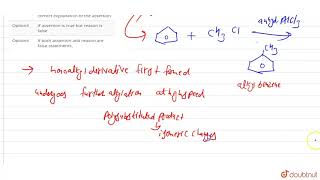 correct explanation of the assertion
Option3
If assertion is true but reason is
false
Option4
If both assertion and reason are
false statements.
+ CH3 Cl
anhyd AlCl3
CH3
alkyl benzene
→ monoalkyl derivative first formed
undergoes further alkylation at high speed
Polysubstituted product
↳ isomeric changes
doubtnut